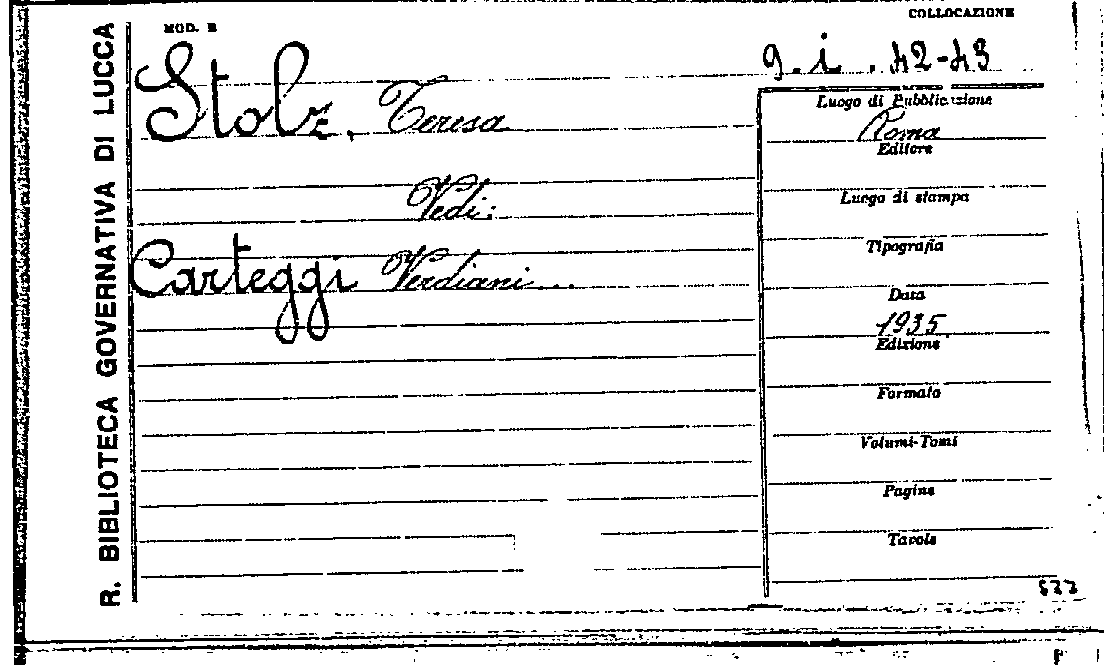 R. BIBLIOTECA GOVERNATIVA DI LUCCA
MOD. B
COLLOCAZIONE
9. i. 42-43
Stolz, Teresa
Vedi:
Carteggi Verdiani...
Luogo di Pubblicazione
Roma
Editore
Luogo di stampa
Tipografia
Data
1935
Edizione
Formato
Volumi-Tomi
Pagine
Tavole